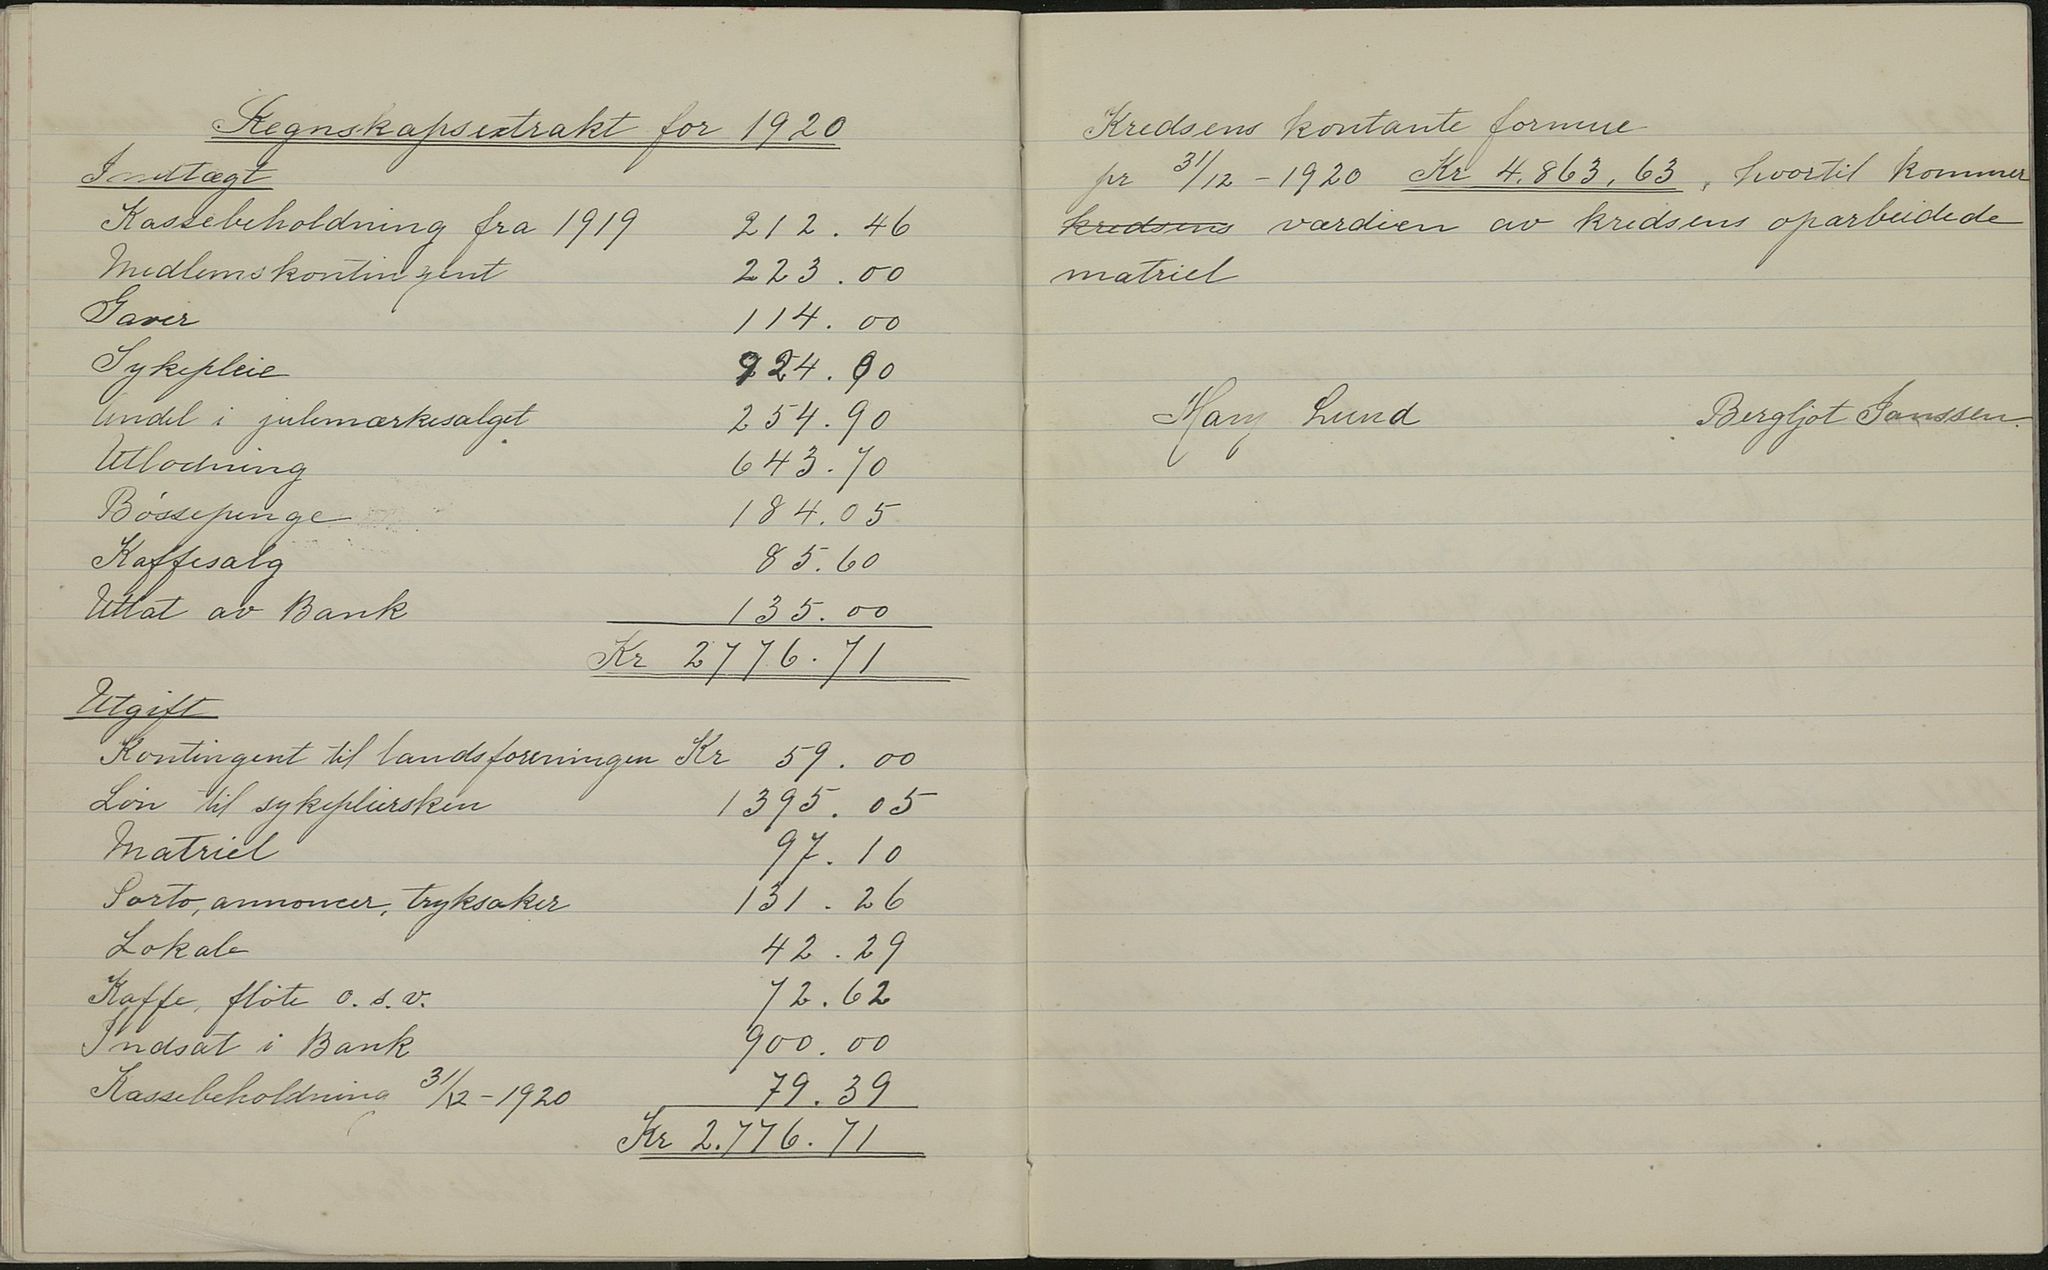 Regnskapsextrakt for 1920
Indtægt
Kassebeholdning fra 1919 212.46
Medlemskontingent 223.00
Gaver 114.00
Sykepleie 924.00
Andel i julemærkesalget 254.90
Utlodning 643.70
Bössepenge 184.05
Kaffesalg 85.60
Uttat av Bank 135.00
Kr 2776.71
Utgift
Kontingent til landsforeningen Kr 59.00
Lön til sykepleiersken 1395.05
Matriel 97.10
Porto, annoncer, tryksaker 131.26
Lokale 42.29
Kaffe, flöte o.s.v. 72.62
Indsat i Bank 900.00
Kassebeholdning 31/12-1920 79.39
Kr 2.776.71
Kredsens kontante formue
pr 31/12-1920 Kr 4.863,63, hvortil kommer
kredsens værdien av kredsens oparbeidede
matriel
Mary Lund Bergljot Janssen.